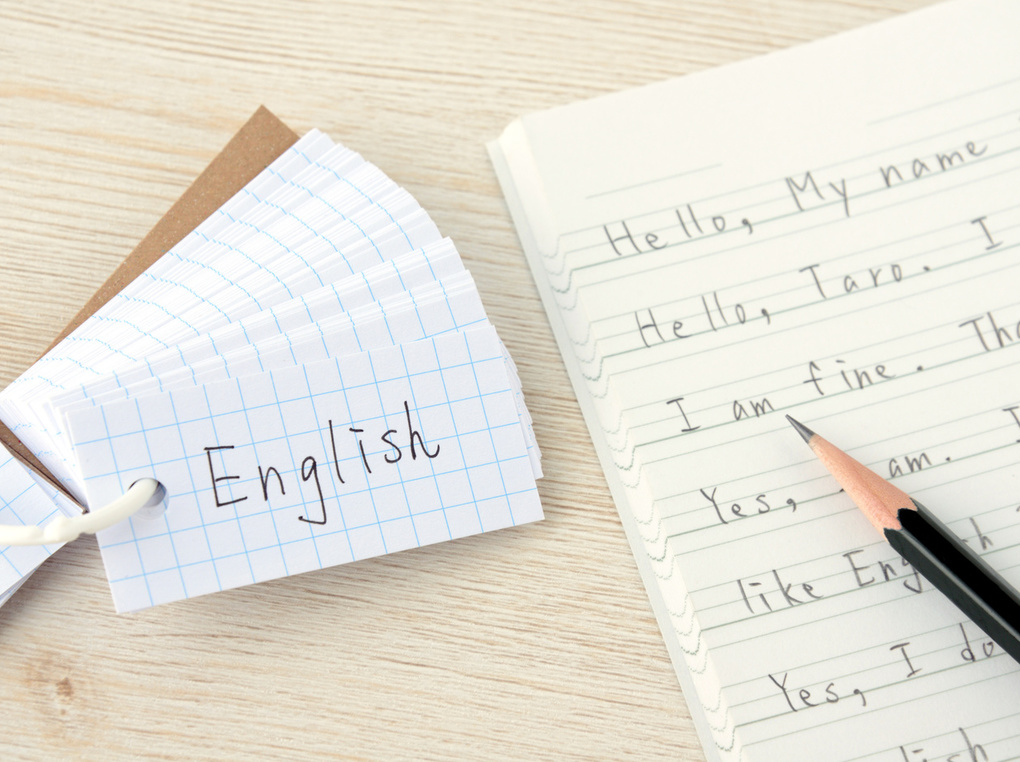 English
Hello, My name
Hello, Taro. I
I am fine.
Yes, am.
like
Yes, I do